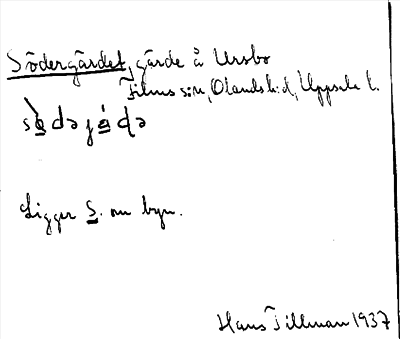 Södergärdet, gärde å Ursbo
Films sn, Olands hd, Uppsala l.
Ligger S. om byn.
Hans Tillman 1937